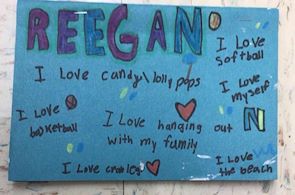 REEGAN
I Love
softball
I love candy\lolly pops
I Love
myself
I Love
basketball
I Love hanging out
with my family
N
I Love
I Love
the beach